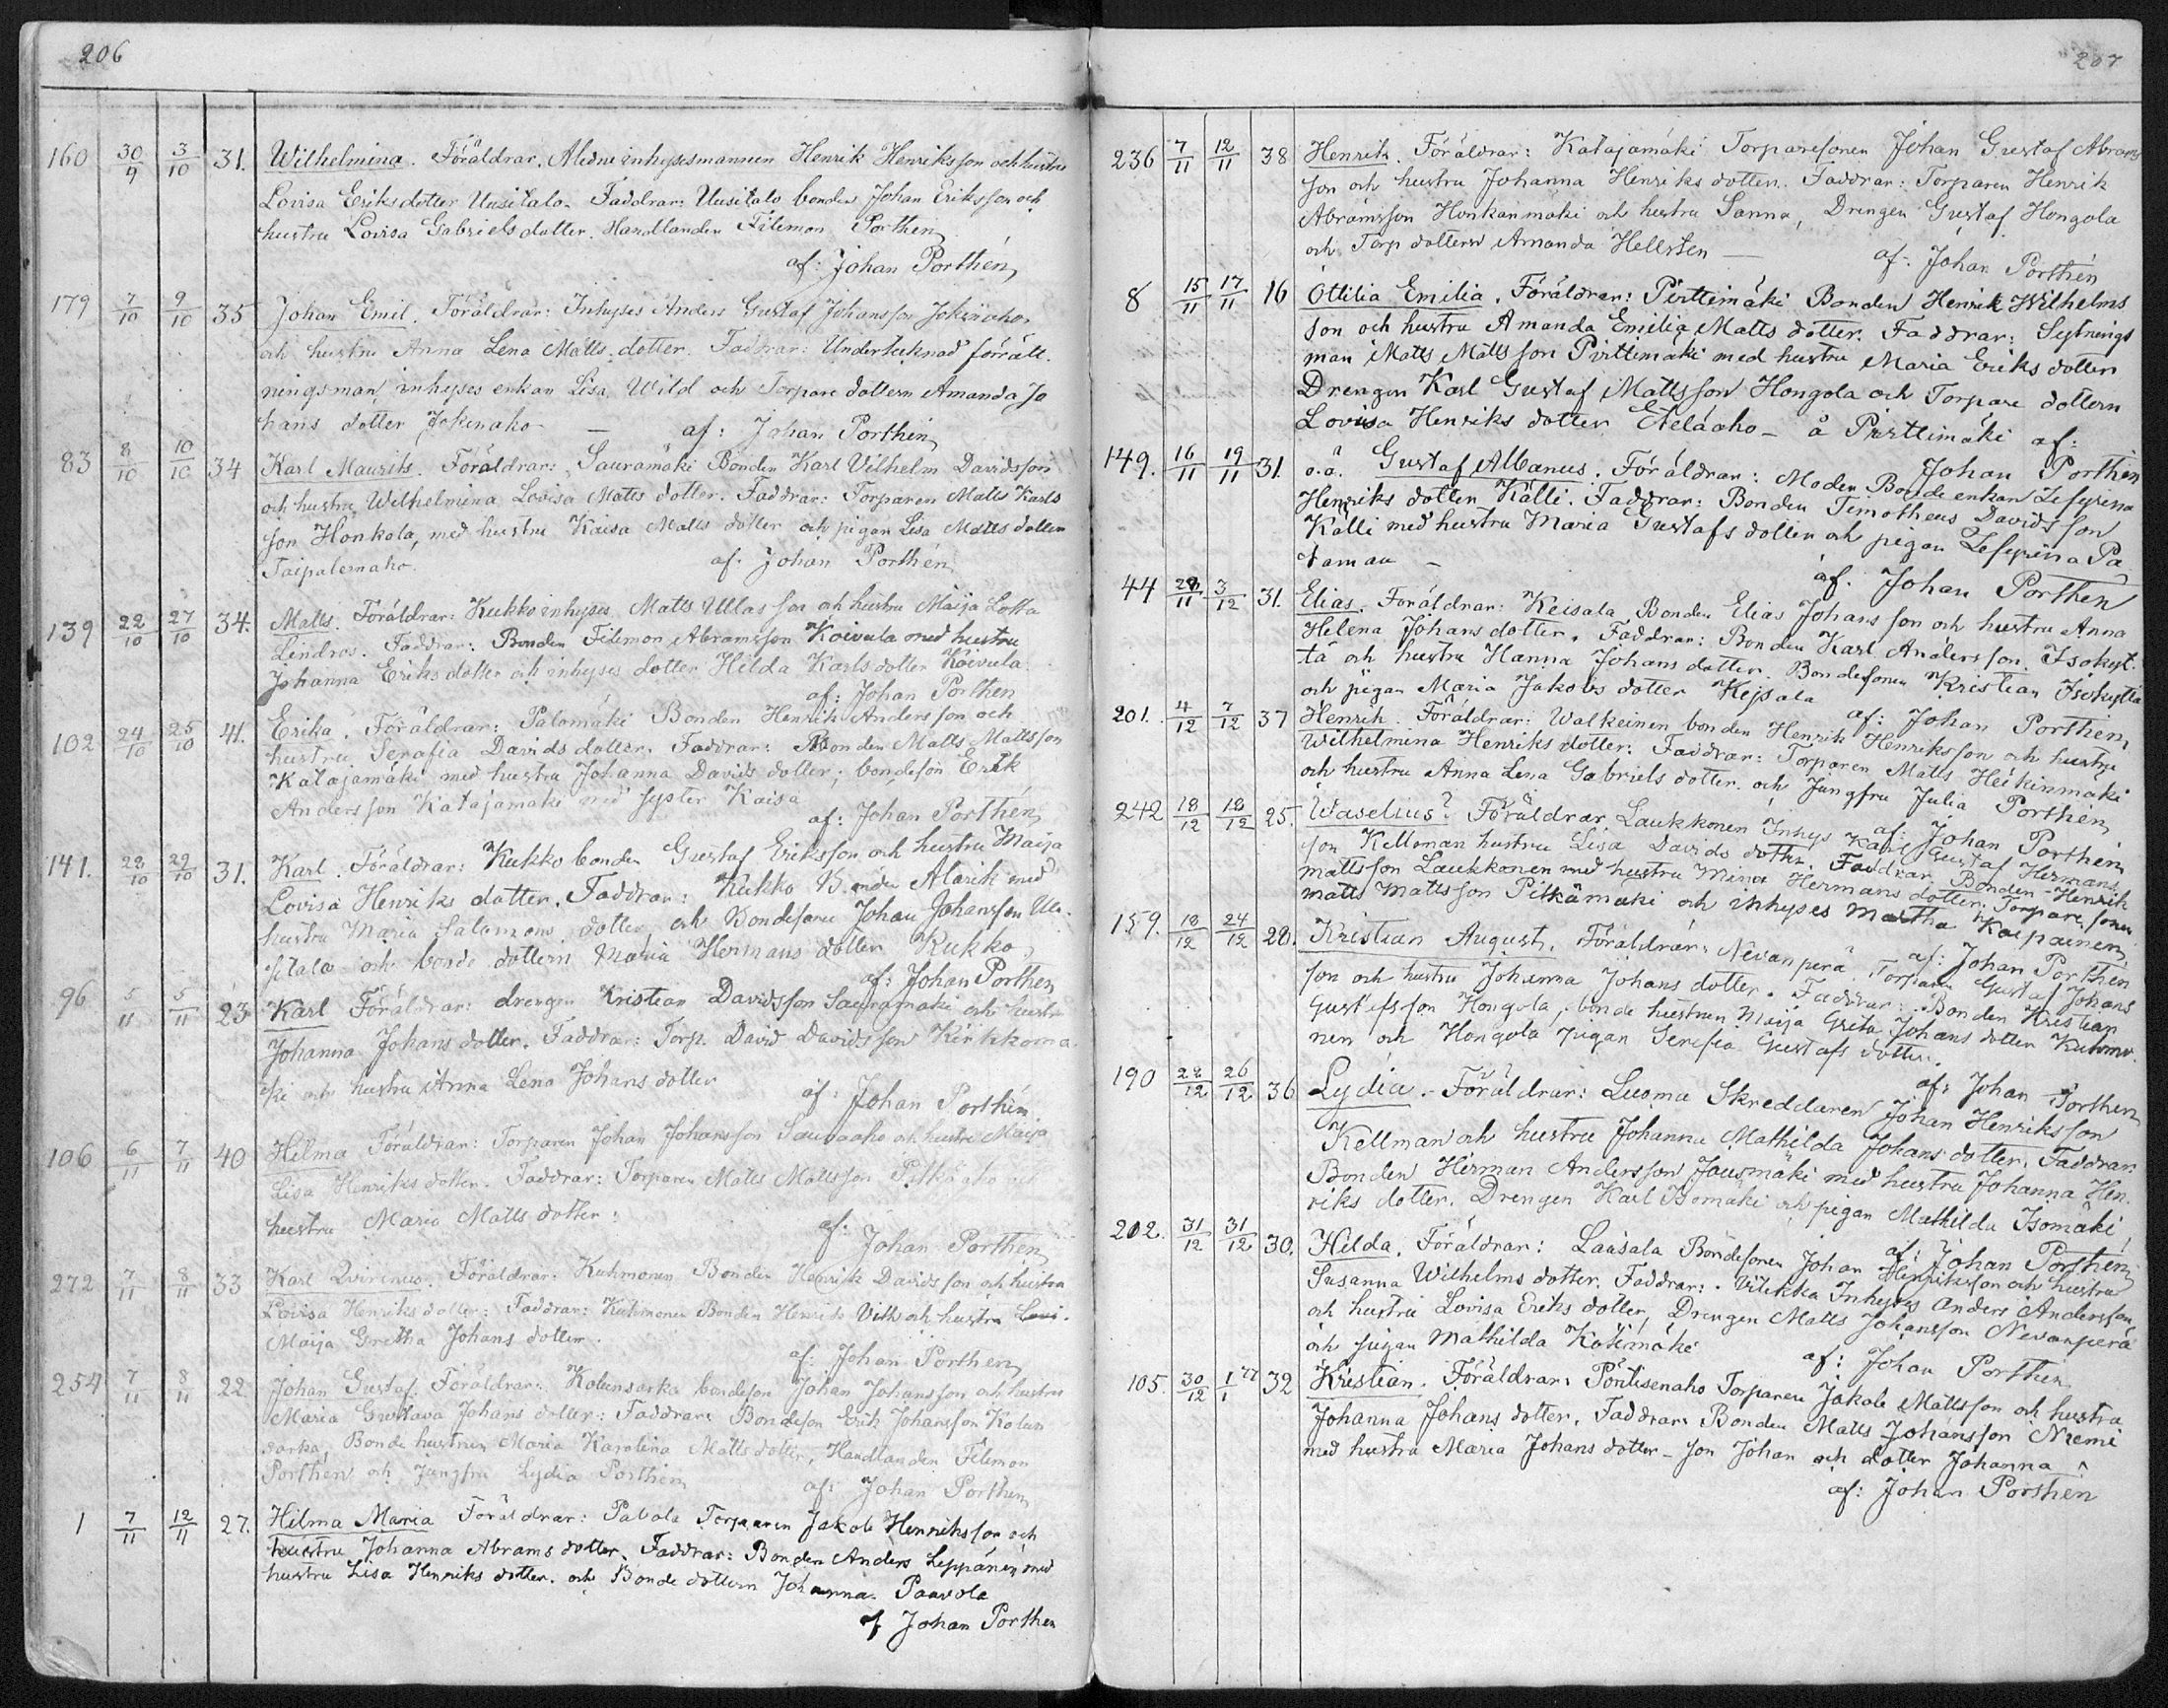 206
160 30/9 3/10 31. Wilhelmina. Föräldrar, inhysesmannen Henrik Henriksson och hustru
Lovisa Eriksdotter Uusitalo. Faddrar: Uusitalo bonden Johan Eriksson och
hustru Lovisa Gabrielsdotter. Handlanden Filemon Porthén
af: Johan Porthén
179 7/10 9/10 35 Johan Emil. Föräldrar: Inhyses Anders Gustaf Johansson Jokinaho
och hustru Anna Lena Matts dotter. Faddrar: Undertecknad förrätt-
ningsman, inhyses enkan Lisa Wild och Torpare dottern Amanda Jo
hans dotter Jokinaho — af: Johan Porthén
83 8/10 10/10 34 Karl Maurits. Föräldrar: Sauramäki Bonden Karl Vilhelm Davidsson
och hustru Wilhelmina Lovisa Matts dotter. Faddrar: Torparen Matts Karls
son Honkola, med hustru Kaisa Matts dotter och pigan Lisa Matts dotter
Taipalemaho. af. Johan Porthén
139 22/10 27/10 34. Matts. Föräldrar: Kukko inhyses Matts Ullasson och hustru Maija Lotta
Lindros. Faddrar: Bonden Filemon Abramsson Koivula med hustru
Johanna Eriks dotter och inhyses dotter Hilda Karls dotter Koivula.
af: Johan Porthen
102 24/10 25/10 41. Erika. Föräldrar: Palomäki Bonden Henrik Andersson och
hustru Serafia Davids dotter. Faddrar: Bonden Matts Mattsson
Katajamäki med hustru Johanna Davids dotter; bondeson Erik
Andersson Katajamäki med syster Kaisa
af: Johan Porthén
141. 28/10 29/10 31. Karl. Föräldrar: Kukko bonden Gustaf Eriksson och hustru Maija
Lovisa Henriks dotter. Faddrar: Kukko Bonden Alarik med
hustru Maria Salomons dotter och Bondesonen Johan Johansson Uu-
sitalo och bonde dottern Maria Hermans dotter Kukko
af: Johan Porthen
96 5/11 5/11 23 Karl Föräldrar: drengen Kristian Davidsson Sauramäki och hustru
Johanna Johans dotter. Faddrar: Torp. David Davidsson Kirkkomä
ki och hustru Anna Lena Johans dotter
af: Johan Porthén.
106 6/11 7/11 40 Hilma Föräldrar: Torparen Johan Johansson Sauvaaho och hustru Maija
Lisa Henriks dotter. Faddrar: Torparen Matts Mattsson Pitkäaho och
hustru Maria Matts dotter:
af: Johan Porthén
272 7/11 8/11 33 Karl Qvirinus. Föräldrar: Kuhmonen Bonden Henrik Davidsson och hustru
Lovisa Henriks dotter: Faddrar: Kuhmonen Bonden Henrik Vilh och hustru
Maija Gretha Johans dotter.
af: Johan Porthen
254 7/11 8/11 22. Johan Gustaf. Föräldrar: Kolunsarka bondeson Johan Johansson och hustru
Maria Gustava Johans dotter: Faddrar: Bondeson Erik Johansson Kolun
sarka, Bonde hustrun Maria Karolina Matts dotter, Handlanden Filemon
Porthén och Jungfru Lydia Porthén
af: Johan Porthén
1 7/11 12/11 27. Hilma Maria Föräldrar: Pavola Torparen Jakob Henriksson och
hustru Johanna Abrams dotter. Faddrar: Bonden Anders Leppänen med
hustru Lisa Henriks dotter. och Bonde dottern Johanna Paavola
af Johan Porthen
207
236 7/11 12/11 38 Henrik. Föräldrar: Katajamäki Torparesonen Johan Gustaf Abrams
son och hustru Johanna Henriks dotter. Faddrar: Torparen Henrik
Abramsson Honkanmäki och hustru Sanna, Drengen Gustaf Hongola
och Torp dottern Amanda Hellsten —
af: Johan Porthén
8 15/11 17/11 16 Ottilia Emilia. Föräldrar: Pirttimäki Bonden Henrik Wilhelms
son och hustru Amanda Emilia Matts dotter. Faddrar: Sytnings
man Matts Mattsson Pirttimäki med hustru Maria Eriks dotter
Drengen Karl Gustaf Mattsson Hongola och Torpare dottern
Lovisa Henriks dotter Eteläaho — å Pirttimäki af:
Johan Porthén
149. 16/11 19/11 31. o.ä. Gustaf Albanus. Föräldrar: Moder Bonde enkan Zefyrina
Henriks dotter Källi. Faddrar: Bonden Timotheus Davidsson
Källi med hustru Maria Gustafs dotter och pigan Zefyrina Pa
taman —
af. Johan Porthen
44 3/12 31. Elias. Föräldrar: Keisala Bonden Elias Johansson och hustru Anna
Helena Johans dotter. Faddrar: Bonden Karl Andersson Isokyt-
tä och hustru Hanna Johans dotter. Bondesonen Kristian Isokyttä
och pigan Maria Jakobs dotter Kejsala
af: Johan Porthén
201. 4/12 7/12 37 Henrik. Föräldrar: Walkeinen bonden Henrik Henriksson och hustru
Wilhelmina Henriks dotter: Faddrar: Torparen Matts Heikinmäki
och hustru Anna Lena Gabriels dotter och Jungfru Julia Porthén
af: Johan Porthen
242 18/12 18/12 25. Waselius? Föräldrar Laukkonen Inhys Karl Gustaf Hermans
son Kellman hustru Lisa Davids dotter. Faddrar Bonden Henrik
mattsson Laukkonen med hustru Mina Hermans dotter. Torpare sonen
matts Mattsson Pitkämäki och inhyses Martha Karpainen
af: Johan Porthén
159. 18/12 24/12 28. Kristian August. Föräldrar: Nevanperä Torparen Gustaf Johans
son och hustru Johanna Johans dotter. Faddrar: Bonden Kristian
Gustafsson Hongola, bonde hustrun Maija Greta Johans dotter Kuhmo-
nen och Hongola pigan Serefia Gustafs dotter.
af: Johan Porthen
190 22/12 26/12 36 Lydia. Föräldrar: Luoma Skreddaren Johan Henriksson
Kellman och hustru Johanna Mathilda Johans dotter. Faddrar:
Bonden Herman Andersson Jousmäki med hustru Johanna Hen
riks dotter. Drengen Karl Isomäki och pigan Mathilda Isomäki
af: Johan Porthén
202. 31/12 31/12 30. Hilda. Föräldrar: Laasala Bondesonen Johan Henriksson och hustru
Susanna Wilhelms dotter. Faddrar: Vilikka Inhyses Anders Andersson
och hustru Lovisa Eriks dotter, Drengen Matts Johansson Nevanperä
och pigan Mathilda Kotimäki
af: Johan Porthén
105. 30/12 1/1 77 32 Kristian. Föräldrar: Pöntisenaho Torparen Jakob Mattsson och hustru
Johanna Johans dotter. Faddrar: Bonden Matts Johansson Niemi
med hustru Maria Johans dotter — son Johan och dotter Johanna
af: Johan Porthén